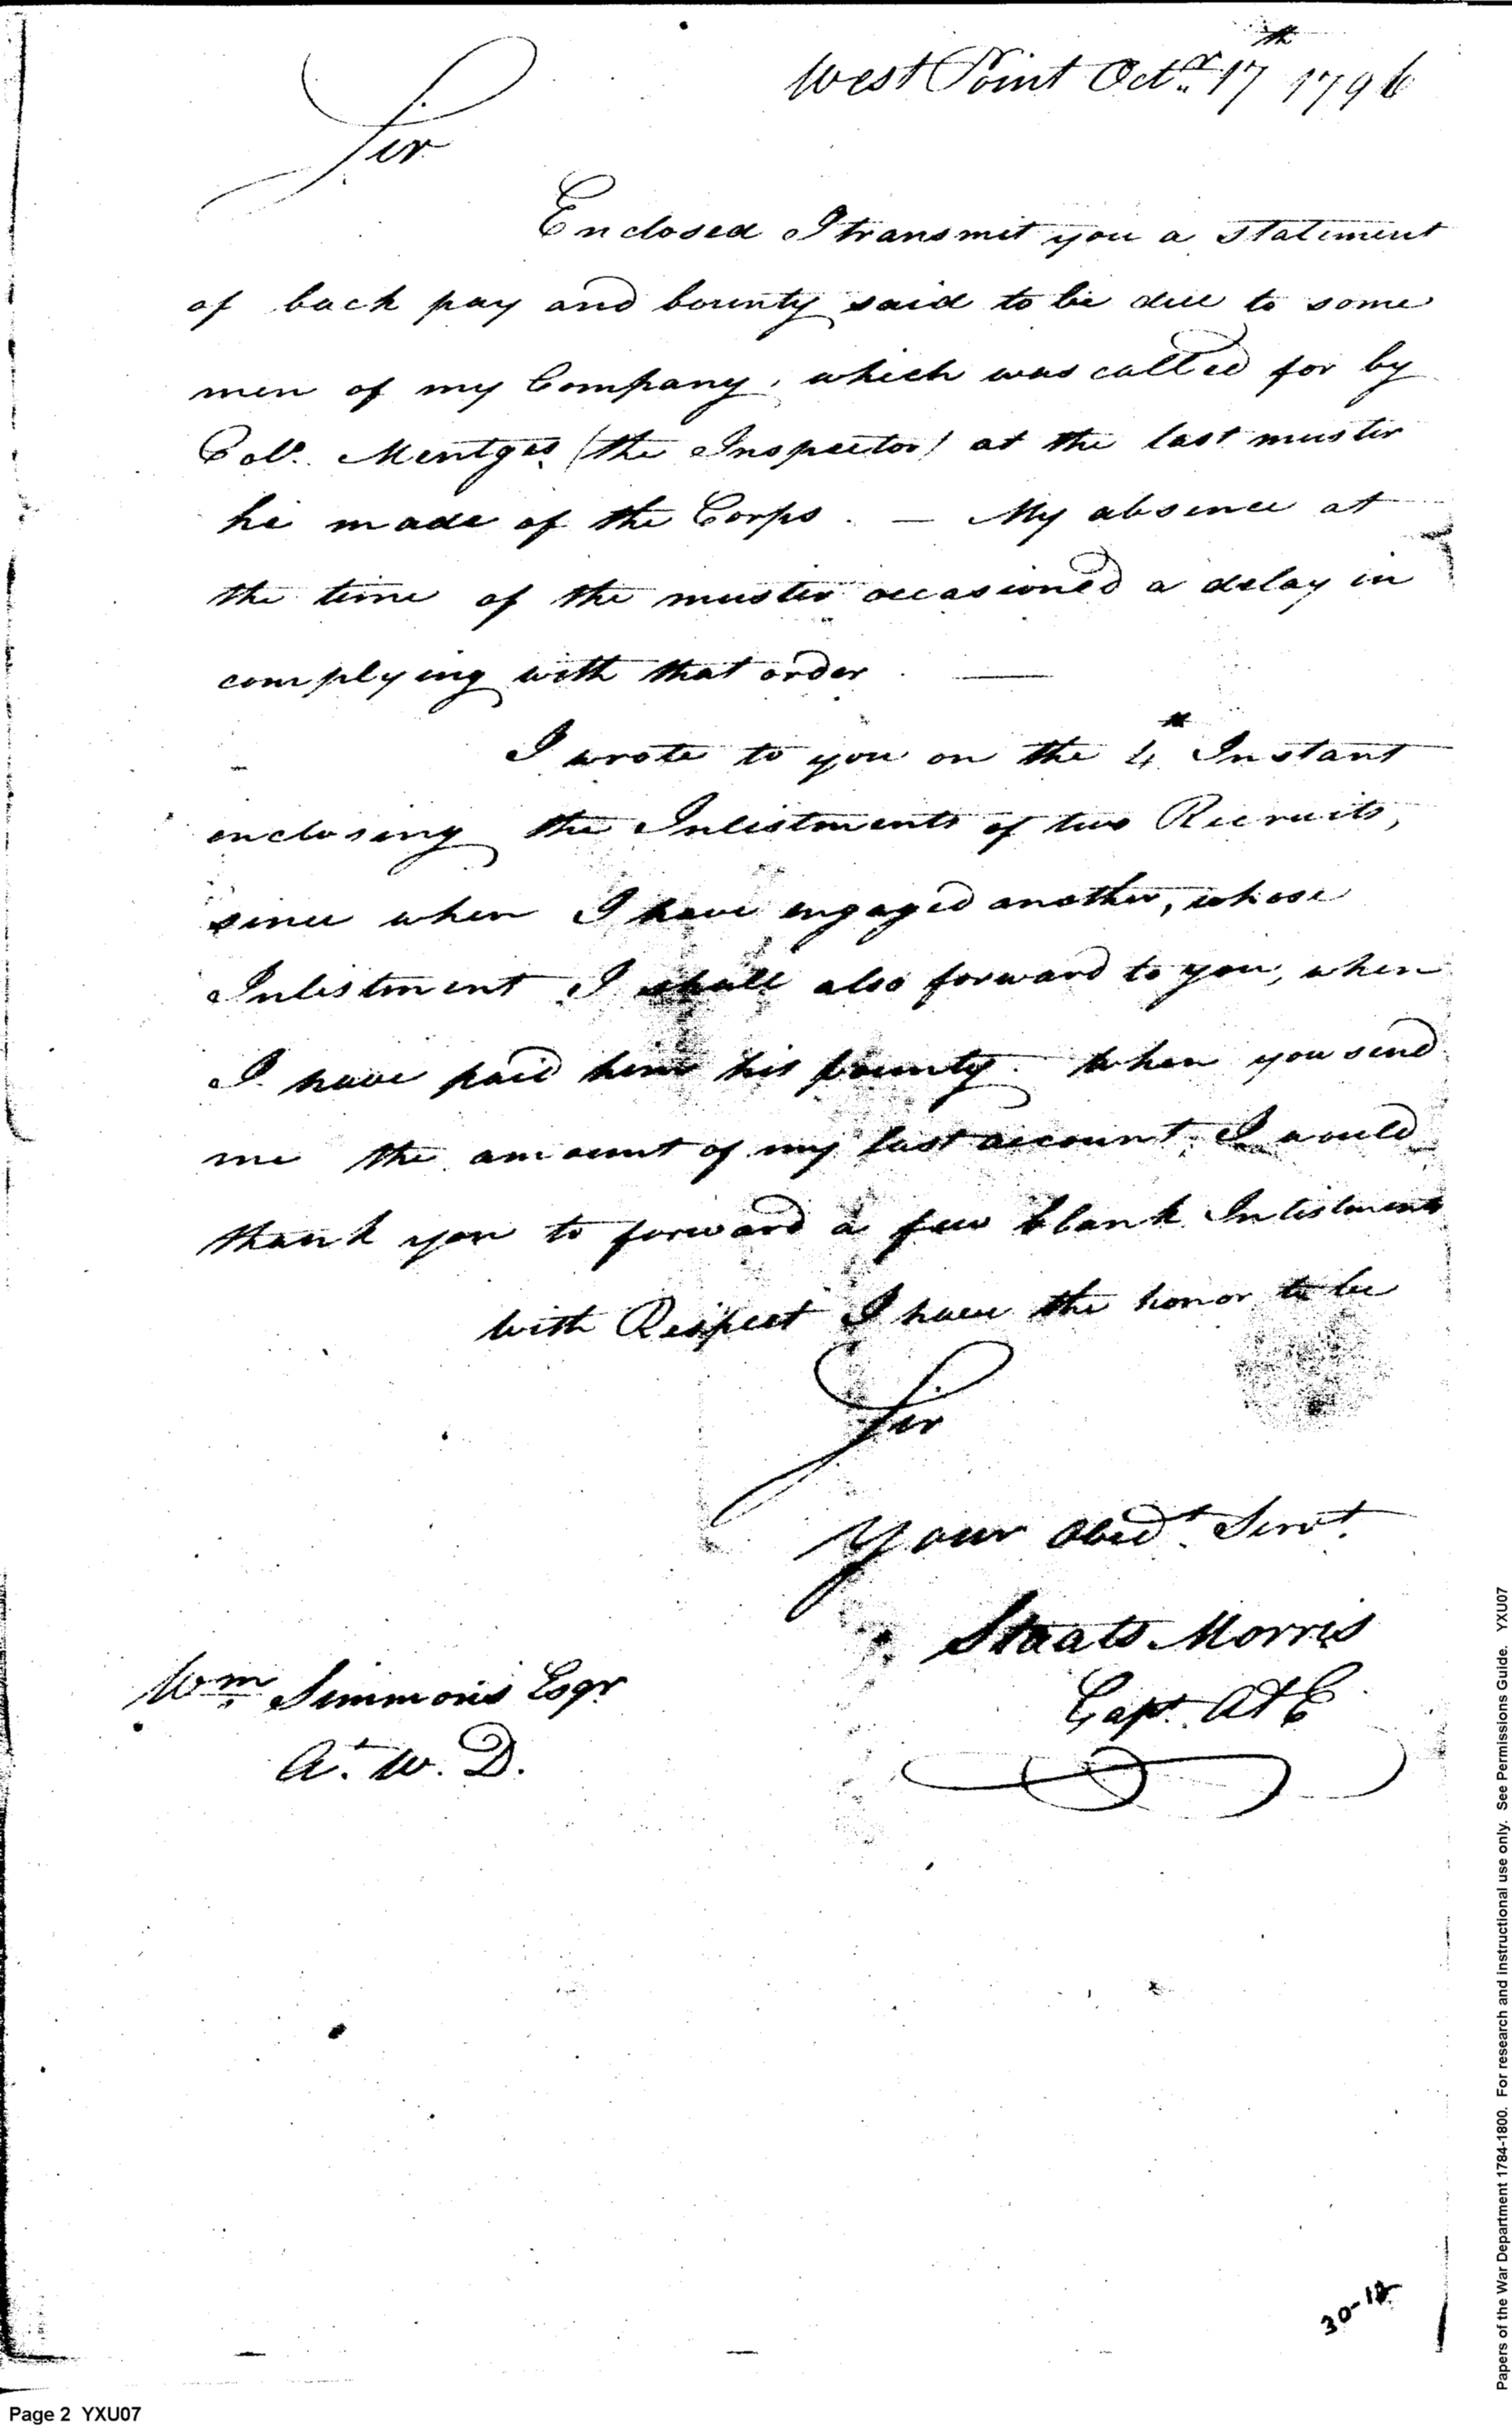 West Point Octr. 17th 1796
Sir
Enclosed I transmit you a statement
of back pay and bounty said to be due to some
men of my Company, which was called for by
Colo. Mentges (the Inspector) at the last muster
he made of the Corps. — My absence at
the time of the muster occasioned a delay in
complying with that order. —
I wrote to you on the 4th Instant
enclosing the Inlistments of two Recruits,
since when I have engaged another, whose
Inlistment I shall also forward to you, when
I have paid him his bounty. When you send
me the amount of my last account, I would
thank you to forward a few blank Inlistments
With Respect I have the honor to be
Sir
Your Obedt. Servt.
Staats Morris
Capt. A & E
Wm Simmons Esqr
At. W. D.
30-12
Page 2 YXU07
Papers of the War Department 1784-1800. For research and instructional use only. See Permissions Guide. YXU07